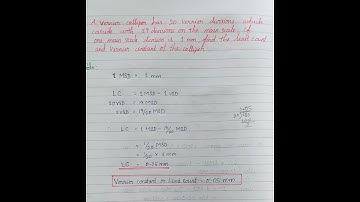 A Vernier callipers has 20 vernier divisions which
coincide with 19 divisions on the main scale. If
one main scale division is 1 mm, find the least count
and Vernier constant of the callipers.
1 MSD = 1 mm
LC = 1 MSD - 1 VSD
20 VSD = 19 MSD
1 VSD = 19/20 MSD
LC = 1 MSD - 19/20 MSD
= 1/20 MSD
= 1/20 × 1 mm
LC = 0.05 mm
Vernier constant or Least count = 0.05 mm